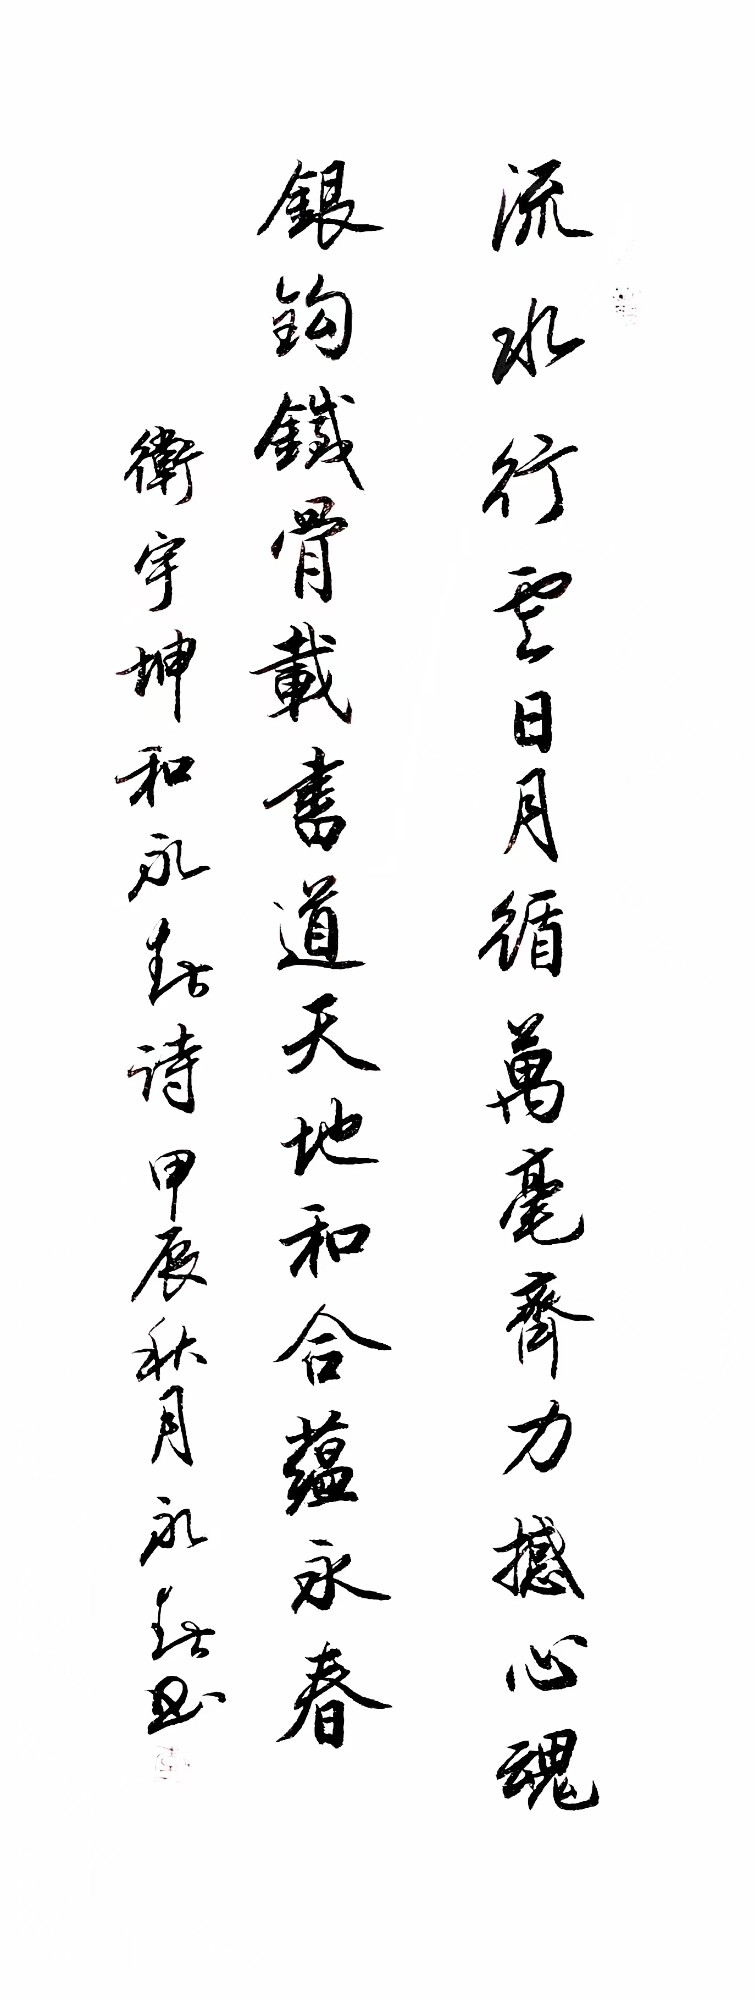 流水行雲日月循萬毫齊力撼心魂
銀鈎鐵骨載書道天地和合蘊永春
衛宇坤和永春诗甲辰秋月永春书